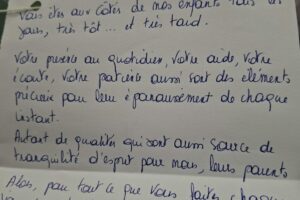 Vous êtes aux côtés de mes enfants tous les
jours, très tôt... et très tard.
Votre présence au quotidien, Votre aide, Votre
écoute, Votre patience aussi sont des éléments
précieux pour leur épanouissement de chaque
instant.
Autant de qualités qui sont aussi source de
tranquilité d'esprit pour nous, leurs parents
Alors, pour tout ce que Vous faites chaque